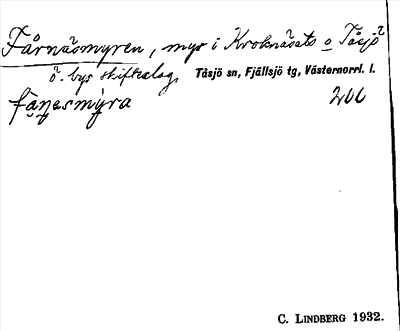 Fårnäsmyren, myr i Kroknäsets o Tåsjö
ö. bys skifteslag. Tåsjö sn, Fjällsjö tg, Västernorrl. l.
206
C. LINDBERG 1932.